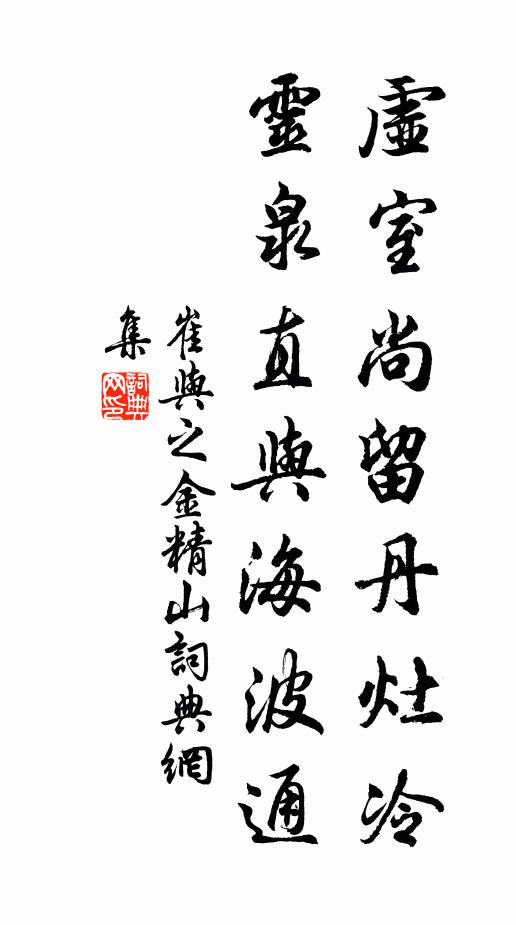 虛室尚留丹灶冷
靈泉直與海波通
崔與之金精山詞典網
集
詞典
网印